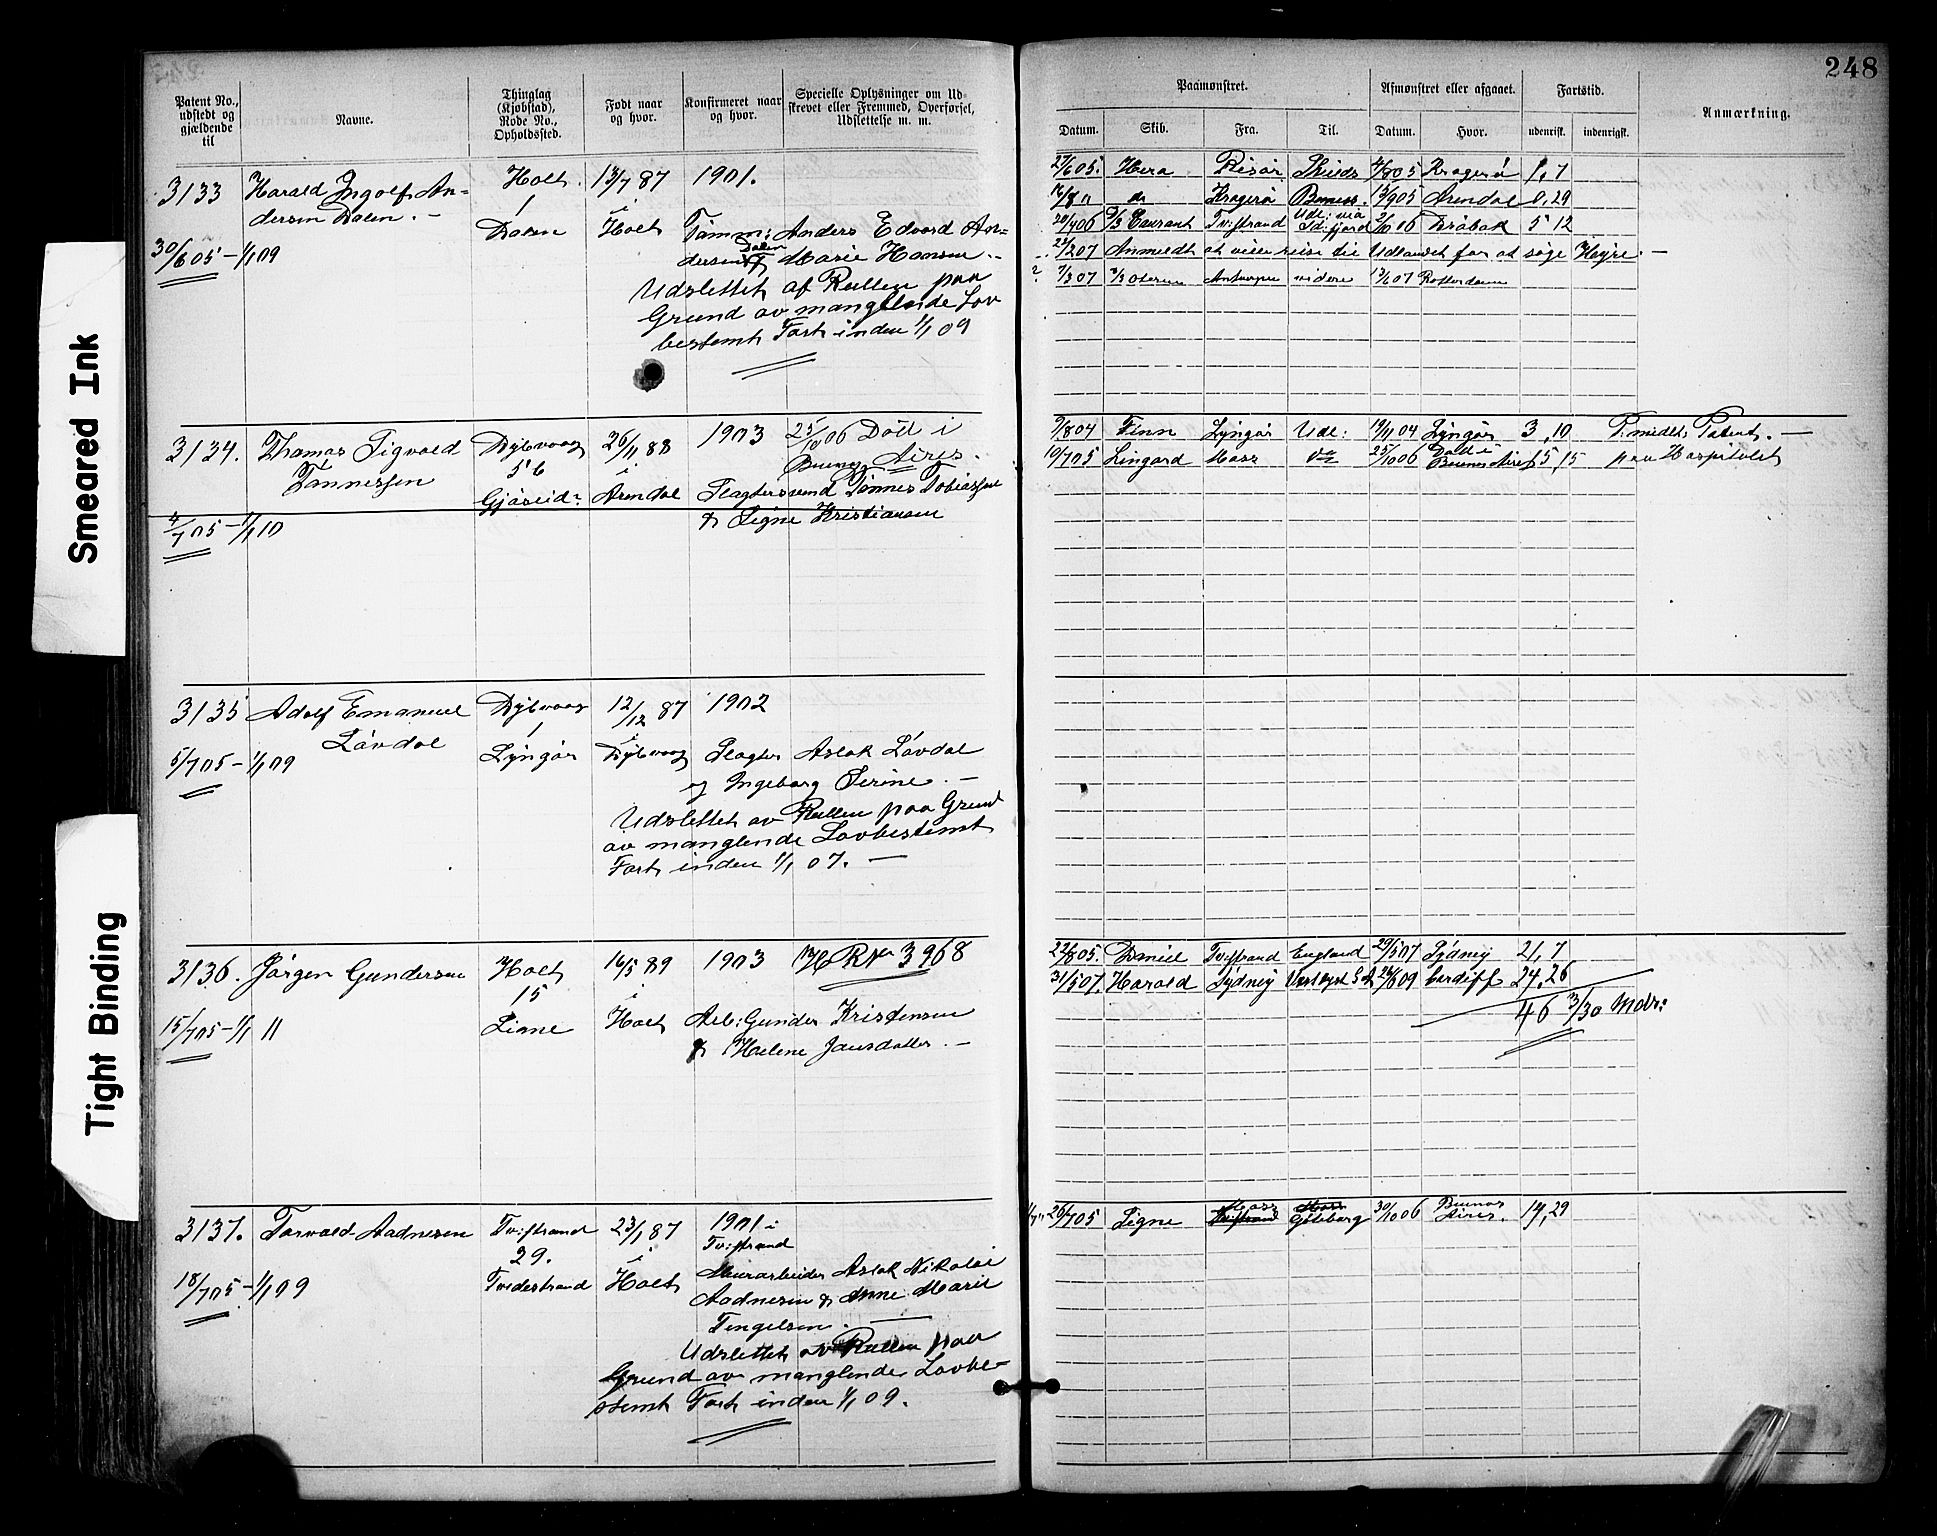 248
Smeared Ink
Tight Binding
Patent No., udstedt og gjældende til
Navne.
Thinglag (Kjøbstad), Rode No., Opholdssted.
Født naar og hvor.
Konfirmeret naar og hvor.
Specielle Oplysninger om Udskrevet eller Fremmed, Overførsel, Udslettelse m. m.
Paamønstret.
Afmønstret eller afgaaet.
Fartstid.
Anmærkning.
Datum. Skib. Fra. Til. Datum. Hvor. udenriks. indenrigst.
3133 Harald Ingolf An- Holt 13/7 87 1901.
dersen Dalen. - 1 i
Dalen Holt Tømm: Anders Edvard An-
30/6 05 - 1/1 09 dersen Dalen & Marie Hansen. -
Udslettet af Rullen paa
Grund av manglende Lov
bestemt Fart inden 1/1 09
27/6 05. Hera Risør Shields 4/8 05 Kragerø 1,7
Kragerø 13/9 05 Arendal 0,29
Tv:strand Udl: via 5 12
27/2 07 Anmeldt at ville reise til Udlandet for at søge Hyre. -
? 7/3 07 Antwerpen videre Rotterdam
3134. Thomas Sigvald Dybvaag 26/11 88 1903 25/10 06 Död i
Tønnessen 56 i Buenos Aires.
Gjæseid Arendal Slagtersvend Tønnes Tobiassen
4/7 05 - 1/1 10 & Signe Kristiansen
9/8 04 Finn Lyngør Udl: 19/11 04 Lyngør 3,10 P. meldt: Patent. -
10/7 05 Lingard Moss do 25/10 06 Død i Buenos Aires 15 15 paa Hospitalet
3135 Adolf Emanuel Dybvaag 12/12 87 1902
Løvdal 1 i
5/7 05 - 1/1 09 Lyngør Dybvaag Slagter Aslak Løvdal
og Ingeborg Serine. -
Udslettet av Rullen paa Grund
av manglende Lovbestemt
Fart inden 1/1 07. -
3136. Jørgen Gundersen Holt 16/5 89 1903 HR No 3968
15 i
15/7 05 - 1/1 11 Liane Holt Arb: Gunder Kristensen
& Helene Jansdatter. -
22/8 05. Daniel Tv:strand England 29/5 07 Sydney 21,7
31/5 07. Harald Sydney Cardiff 24,26
46 3/30 Mdr:
3137. Torvald Aadnesen Tv:strand 23/1 87 1901 i
29. i Tv:strand
18/7 05 - 1/1 09 Tvedestrand Holt Murarbeider Aslak Nikolai
Aadnesen & Anne Marie
Tengelsen. -
Udslettet av Rullen paa
Grund av manglende Lovbe-
stemt Fart inden 1/1 09.
26/7 05 Signe Moss Tv:strand Moss Göteborg 30/10 06 Buenos Aires. 14,29